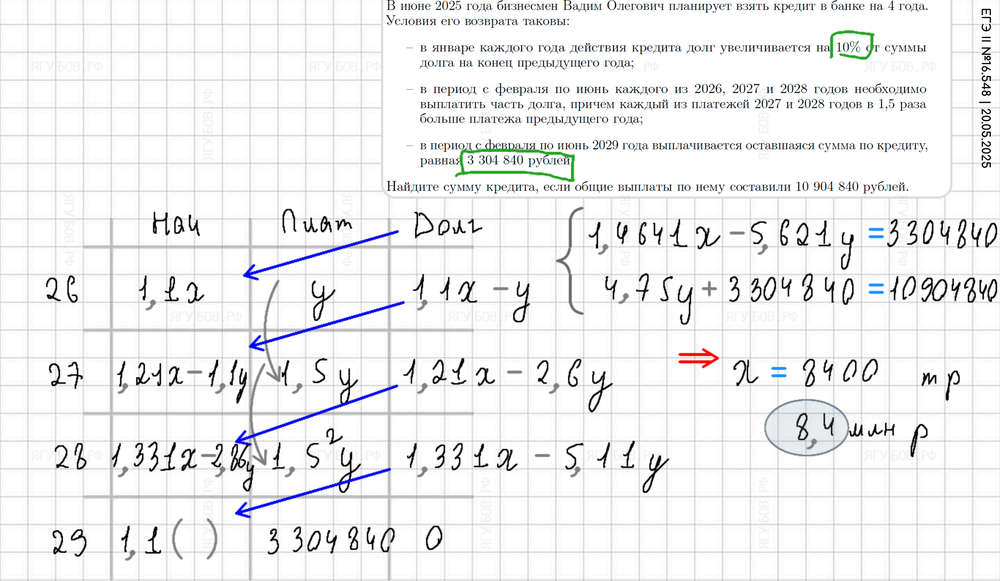 В июне 2025 года бизнесмен Вадим Олегович планирует взять кредит в банке на 4 года.
Условия его возврата таковы:
– в январе каждого года действия кредита долг увеличивается на 10% от суммы
долга на конец предыдущего года;
– в период с февраля по июнь каждого из 2026, 2027 и 2028 годов необходимо
выплатить часть долга, причем каждый из платежей 2027 и 2028 годов в 1,5 раза
больше платежа предыдущего года;
– в период с февраля по июнь 2029 года выплачивается оставшаяся сумма по кредиту,
равная 3 304 840 рублей.
Найдите сумму кредита, если общие выплаты по нему составили 10 904 840 рублей.
ЕГЭ II №16.548 | 20.05.2025
Нач Плат Долг
26 1,1x y 1,1x - y
27 1,21x - 1,1y 1,5y 1,21x - 2,6y
28 1,331x - 2,86y 1,5²y 1,331x - 5,11y
29 1,1( ) 3304840 0
1,4641x - 5,621y = 3304840
4,75y + 3304840 = 10904840
⇒ x = 8400 тр
8,4 млн р
ЯГУБОВ.РФ